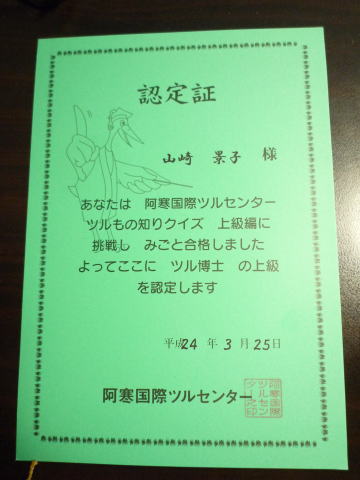 認定証
山崎 景子 様
あなたは 阿寒国際ツルセンター
ツルもの知りクイズ 上級編に
挑戦し みごと合格しました
よってここに ツル博士 の上級
を認定します
平成24年3月25日
阿寒国際ツルセンター
阿寒国際
ツルセン
ター之印